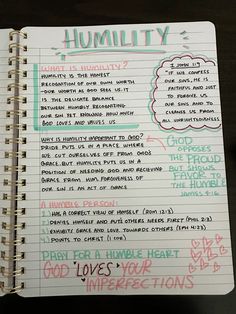 HUMILITY
WHAT IS HUMILITY?
HUMILITY IS THE HONEST
RECOGNITION OF OUR OWN WORTH
-OUR WORTH AS GOD SEES US. IT
IS THE DELICATE BALANCE
BETWEEN HUMBLY RECOGNIZING
OUR SIN YET KNOWING HOW MUCH
GOD LOVES AND VALUES US
1 JOHN 1:9
"IF WE CONFESS
OUR SINS, HE IS
FAITHFUL AND JUST
TO FORGIVE US
OUR SINS AND TO
CLEANSE US FROM
ALL UNRIGHTEOUSNESS
WHY IS HUMILITY IMPORTANT TO GOD?
PRIDE PUTS US IN A PLACE WHERE
WE CUT OURSELVES OFF FROM GOD'S
GRACE. BUT HUMILITY PUTS US IN A
POSITION OF NEEDING GOD AND RECIEVING
GRACE FROM HIM. FORGIVENESS OF
OUR SIN IS AN ACT OF GRACE
GOD
OPPOSES
THE PROUD,
BUT SHOWS
FAVOR TO
THE HUMBLE
JAMES 4:6
A HUMBLE PERSON:
1. HAS A CORRECT VIEW OF HIMSELF (ROM 12:3)
2. DENIES HIMSELF AND PUTS OTHERS NEEDS FIRST (PHIL 2:3)
3. EXHIBITS GRACE AND LOVE TOWARDS OTHERS (EPH 4:23)
4. POINTS TO CHRIST (1 COR)
PRAY FOR A HUMBLE HEART
GOD LOVES YOUR
IMPERFECTIONS